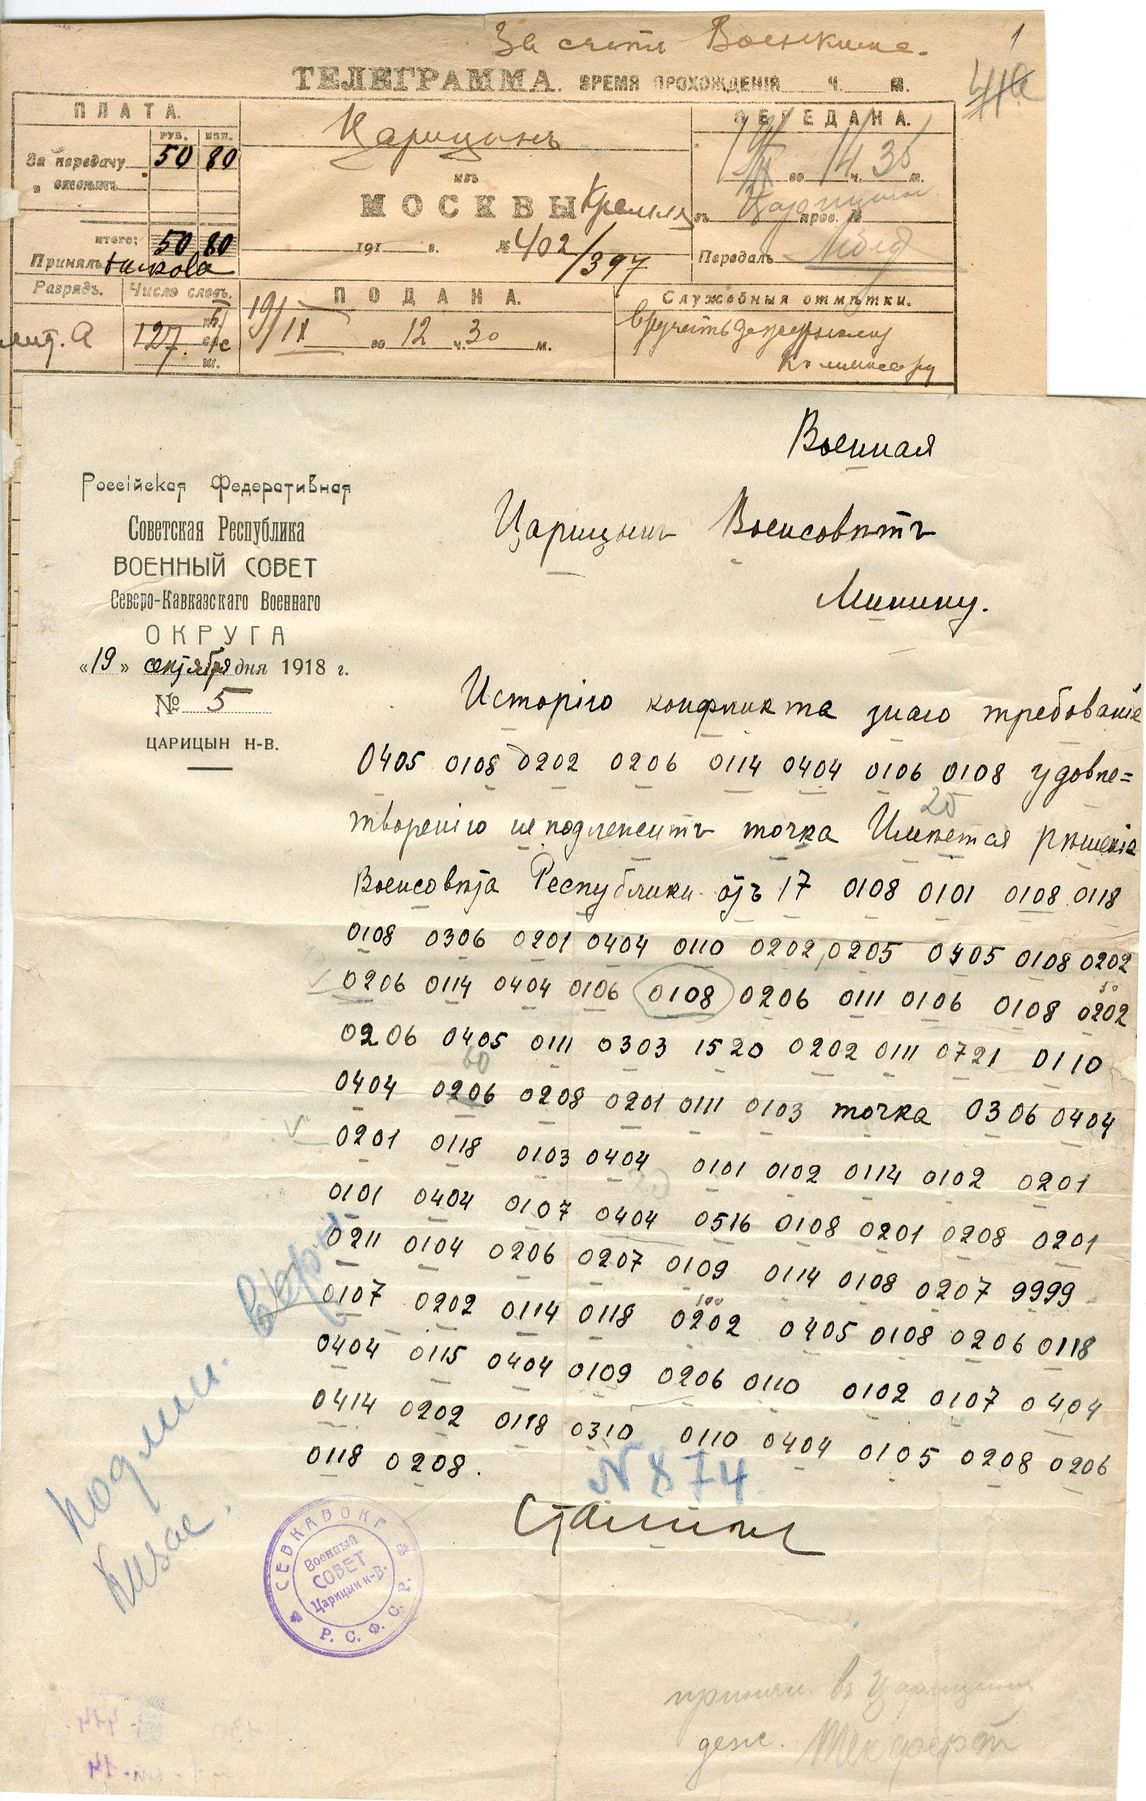 За счетъ Военкома.
1
ТЕЛЕГРАММА. ВРЕМЯ ПРОХОЖДЕНІЯ Ч. М.
ПЛАТА.
РУБ. КОП.
За передачу 50 80
итого: 50 80
Принялъ
Разрядъ. Число словъ.
лит. А 127
Царицынъ
изъ
МОСКВЫ Кремля
191 г. № 402/397
ПОДАНА.
19/IX во 12 ч. 30 м.
ПЕРЕДАНА.
19/IX во 14 ч. 35 м.
въ Царицын
Передалъ
Служебныя отмѣтки.
вручить дежурному
комиссару
Военная
Царицын Военсовѣтъ
Минину.
Россійская Федеративная
Советская Республика
ВОЕННЫЙ СОВЕТ
Северо-Кавказскаго Военнаго
ОКРУГА
«19» сентября дня 1918 г.
№ 5
ЦАРИЦЫН Н-В.
Исторію конфликта знаю требованіе
0405 0108 0202 0206 0114 0404 0106 0108 удовле=
25
творенію неподлежитъ точка Имѣется рѣшеніе
Военсовѣта Республики отъ 17 0108 0101 0108 0118
0108 0306 0201 0404 0110 0202 0205 0405 0108 0202
0206 0114 0404 0106 0108 0206 0111 0106 0108 0202
50
0206 0405 0111 0303 1520 0202 0111 0721 0110
60
0404 0206 0208 0201 0111 0103 точка 0306 0404
0201 0118 0103 0404 0101 0102 0114 0102 0201
0101 0404 0107 0404 0516 0108 0201 0208 0201
0211 0104 0206 0207 0109 0114 0108 0207 9999
100
0107 0202 0114 0118 0202 0405 0108 0206 0118
0404 0115 0404 0109 0206 0110 0102 0107 0404
0414 0202 0118 0310 0110 0404 0105 0208 0206
0118 0208.
N 874.
Сталин
СЕВКАВОКР
Военный
СОВЕТ
Царицын н-В.
Р. С. Ф. С. Р.
принял в Царицыне
деж.